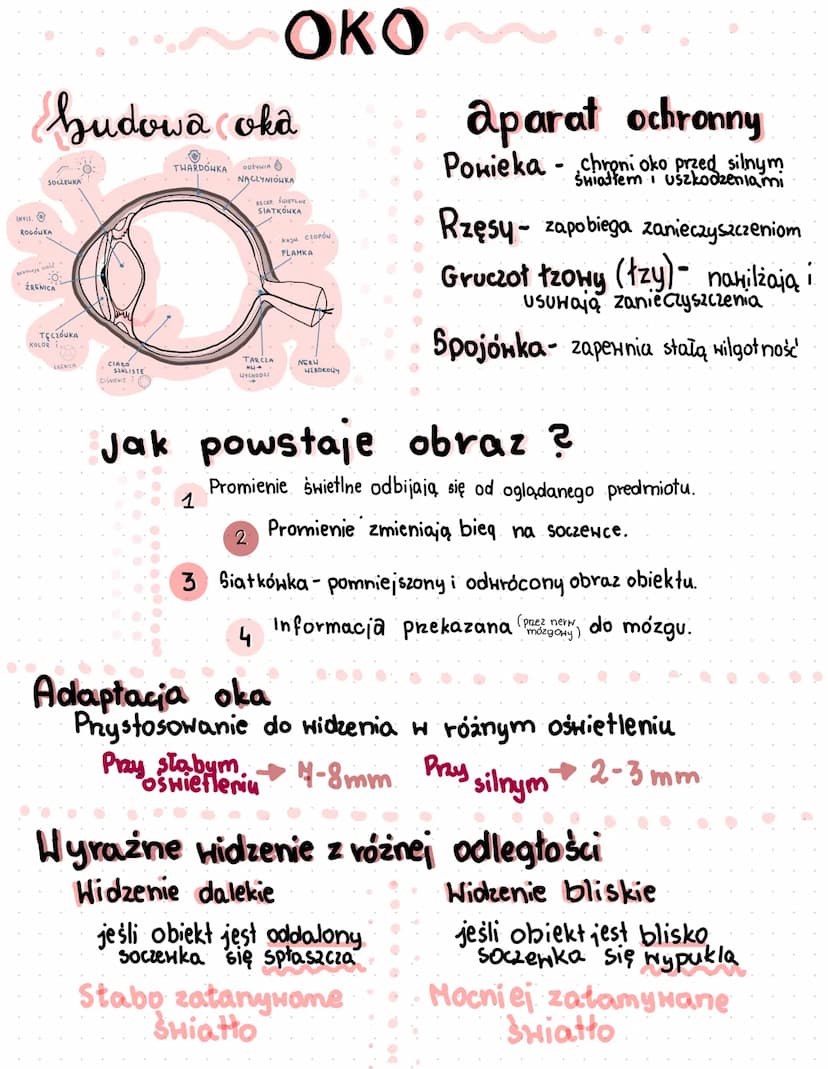 OKO
budowa oka
SOCZEWKA
TWARDÓWKA
ODŻYWIA
NACZYNIÓWKA
RECEP. ŚWIETLNE
SIATKÓWKA
ROGÓWKA
NAJW. CZOPÓW
PLAMKA
ŹRENICA
TĘCZÓWKA
KOLOR I
ŹRENICA
CIAŁO
SZKLISTE
CIŚNIENIE
TARCZA
NW→
WYCHODZI
NERW
WZROKOWY
aparat ochronny
Powieka - chroni oko przed silnym
światłem i uszkodzeniami
Rzęsy - zapobiega zanieczyszczeniom
Gruczoł łzowy (łzy) - nawilżają i
usuwają zanieczyszczenia
Spojówka - zapewnia stałą wilgotność
Jak powstaje obraz ?
1 Promienie świetlne odbijają się od oglądanego predmiotu.
2 Promienie zmieniają bieg na soczewce.
3 Siatkówka - pomniejszony i odwrócony obraz obiektu.
4 Informacja przekazana (przez nerw mózgowy) do mózgu.
Adaptacja oka
Przystosowanie do widzenia w różnym oświetleniu
Przy słabym
oświetleniu → 7-8mm
Przy
silnym → 2-3mm
Wyraźne widzenie z różnej odległości
Widzenie dalekie
jeśli obiekt jest oddalony
soczewka się spłaszcza
Słabo załamywane
światło
Widzenie bliskie
jeśli obiekt jest blisko
soczewka się wypukla
Mocniej załamywane
światło